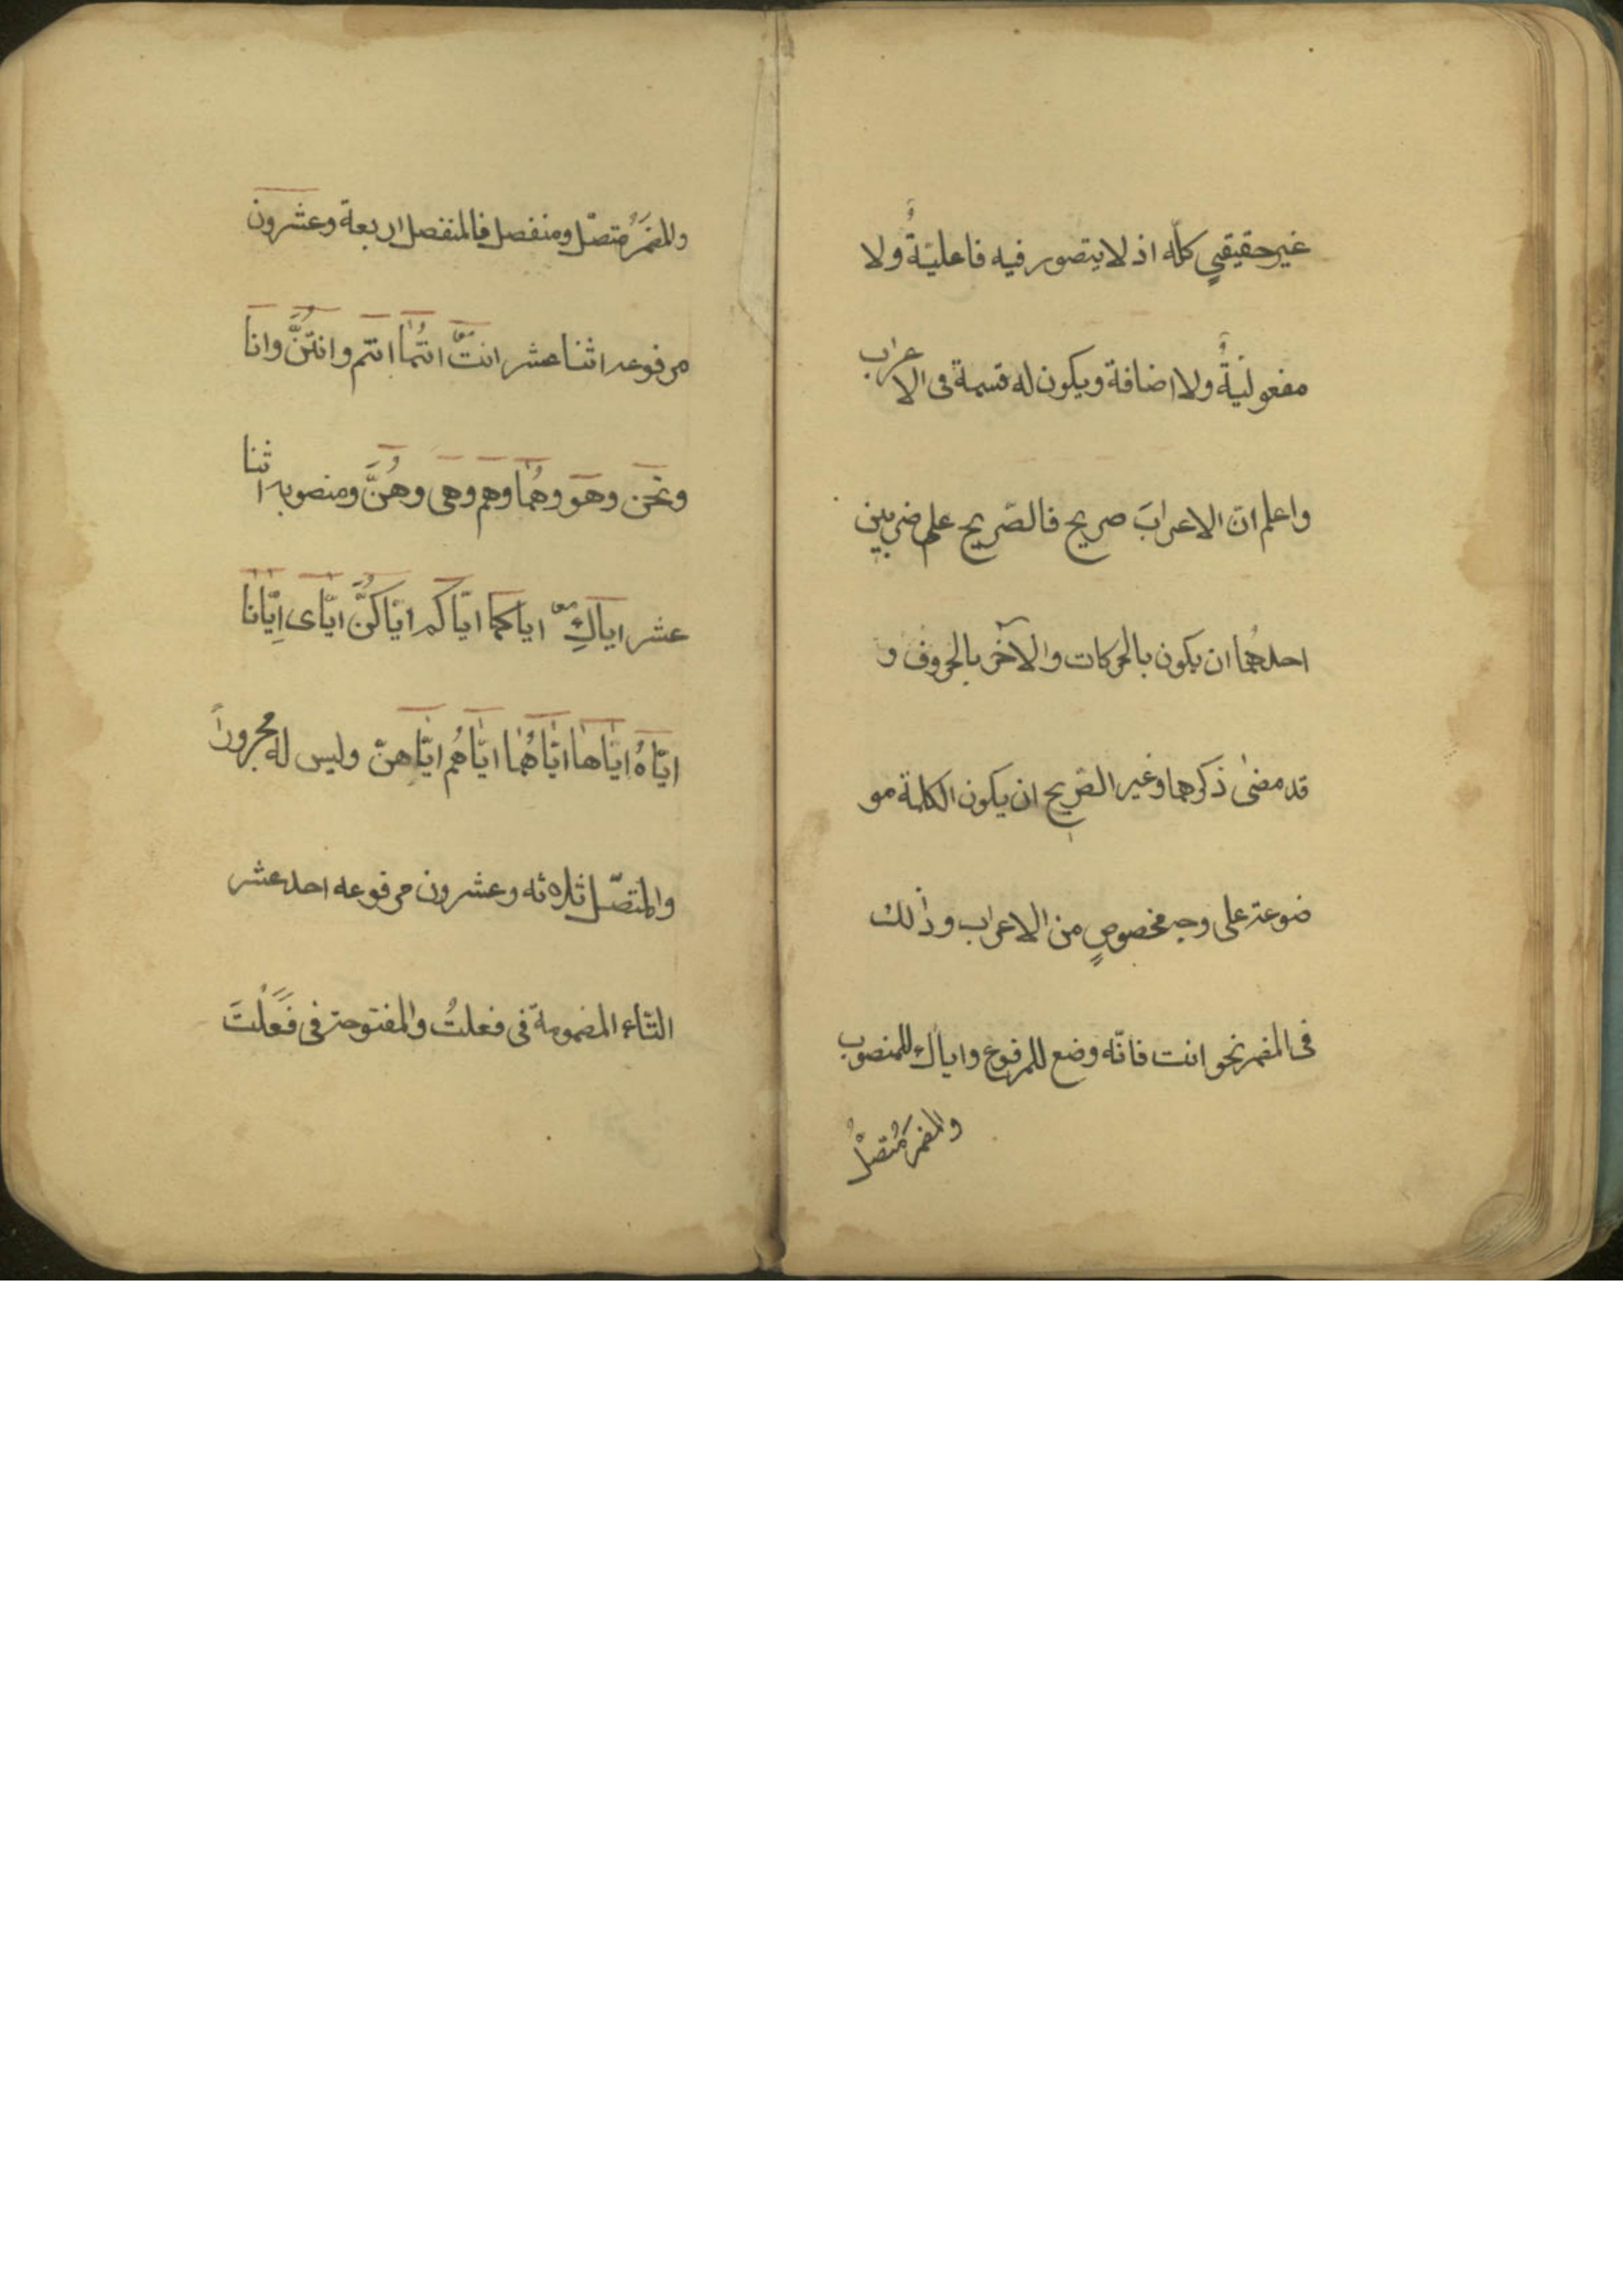 غير حقيقيٍ كلّه اذ لا يتصور فيه فاعليّةٌ ولا
مفعوليّةٌ ولا اضافة ويكون له قسمة فى الاعراب
واعلم انّ الاعرابَ صريح فالصّريح على ضربين
احدهُما ان يكون بالحركات والآخر بالحروف و
قد مضىٰ ذكرهما وغير الصّريح ان يكون الكلمة مو
ضوعة على وجه مخصوصٍ من الاعراب وذٰلك
فى المضمر نحو انت فانّه وضع للمرفوع واياك للمنصوب
والمضمرُ مُتصلٌ
والمضمَرُ متصّل ومنفصل فالمنفصل اربعة وعشرون
مرفوعه اثنا عشر انتَّ انتُمٰا انتم وانتُنَّ وانا
ونحَن وهوَ وهُمٰا وهم وهى وهُنَّ ومنصوبه اثنا
عشر اياكِ اياكما ايّاكم ايّاكُنَّ ايّاى اِيّانا
ايّاهُ ايّاهٰا ايّاهُمٰا ايّاهُم ايّاهنّ وليس له مجروراً
والمتصّل ثلاثه وعشرون مرفوعه احد عشر
التّاء المضمومة فى فعلتُ والمفتوحة فى فَعَلْتَ